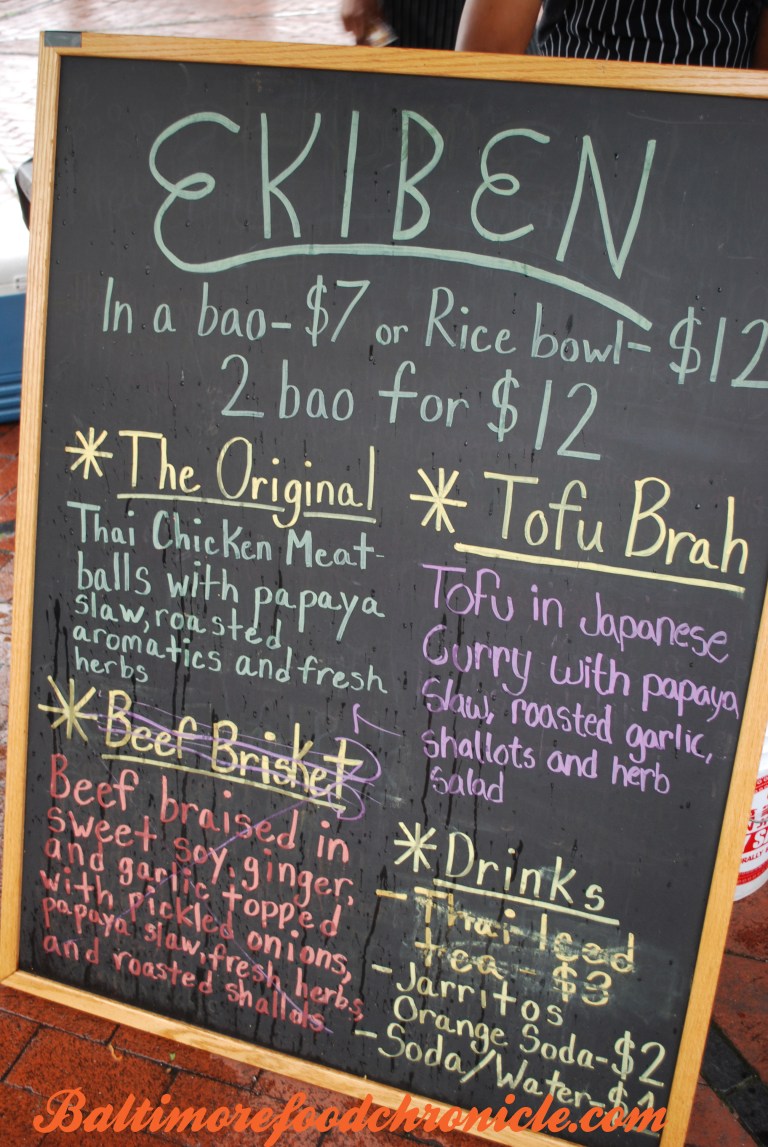 EKIBEN
In a bao- $7 or Rice bowl- $12
2 bao for $12
* The Original
Thai Chicken Meat-
balls with papaya
slaw, roasted
aromatics and fresh
herbs
* Beef Brisket
Beef braised in
sweet soy, ginger,
and garlic topped
with pickled onions,
papaya slaw, fresh herbs,
and roasted shallots
* Tofu Brah
Tofu in Japanese
Curry with papaya
slaw, roasted garlic,
shallots and herb
salad
* Drinks
- Thai Iced
tea - $3
- Jarritos
Orange Soda- $2
- Soda/Water- $1
Baltimorefoodchronicle.com